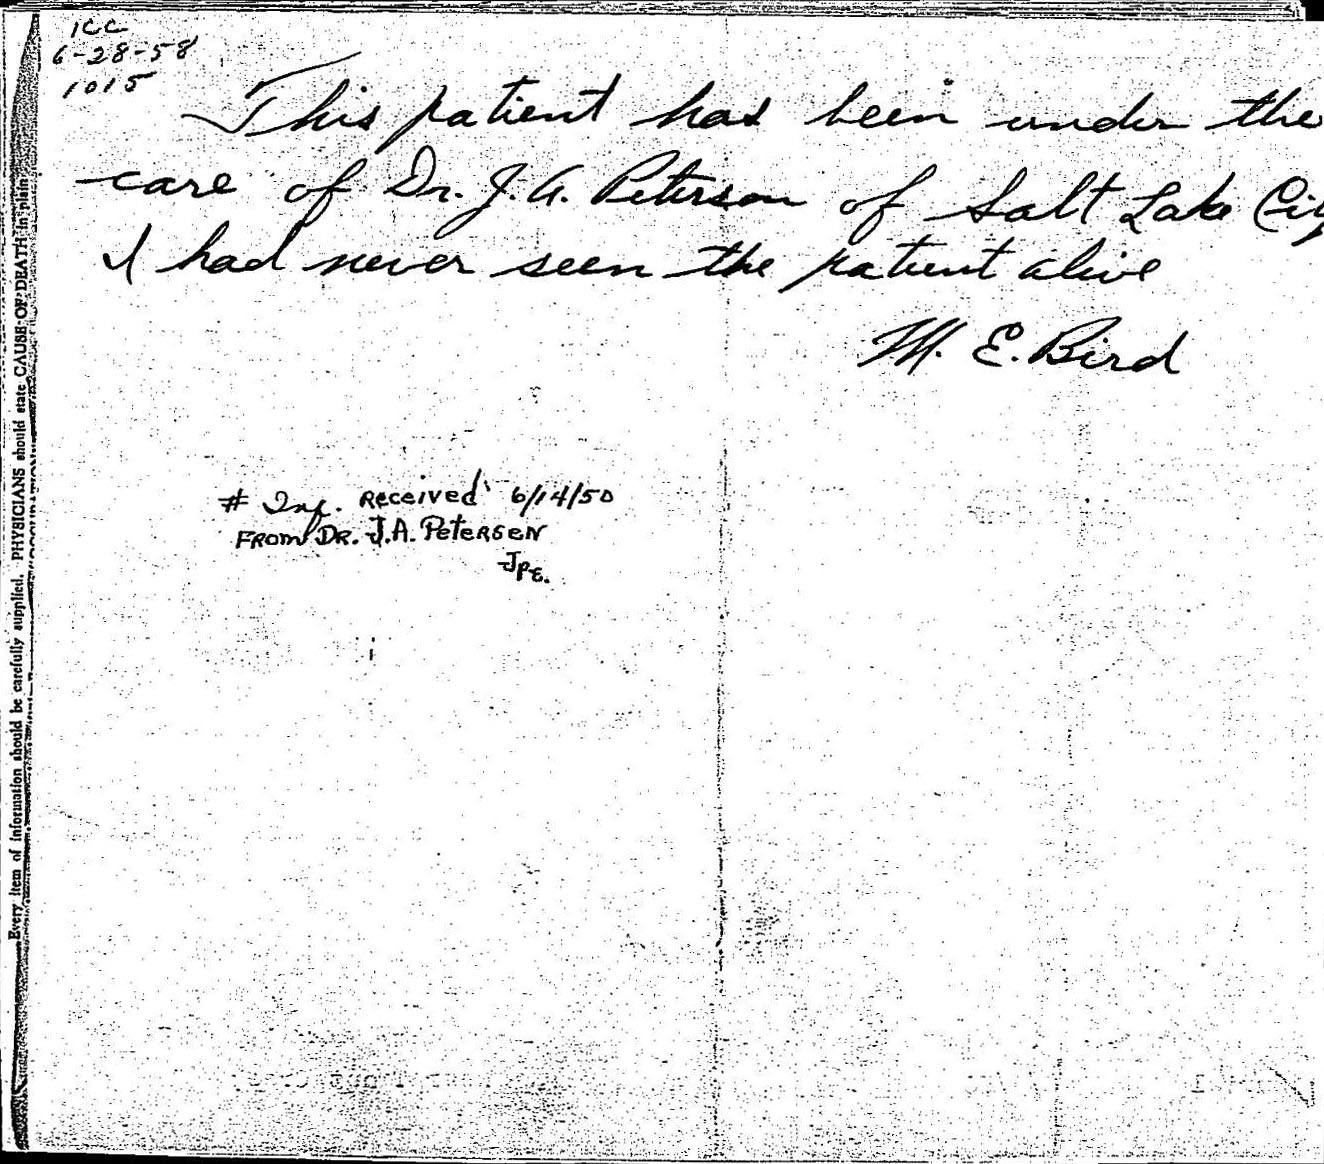 1CC
6-28-58
1015
This patient has been under the
care of Dr. J. A. Peterson of Salt Lake City
I had never seen the patient alive
M. E. Bird
# Inf. Received 6/14/50
FROM DR. J.A. PETERSEN
JPE.
Every item of information should be carefully supplied. PHYSICIANS should state CAUSE OF DEATH in plain